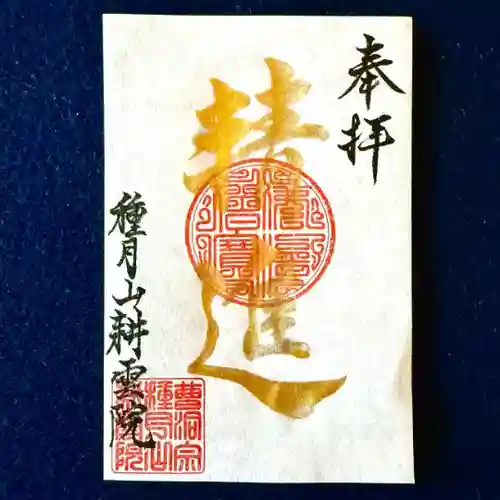 奉拝
精進
種月山耕雲院
曹洞宗
種月山
耕雲院